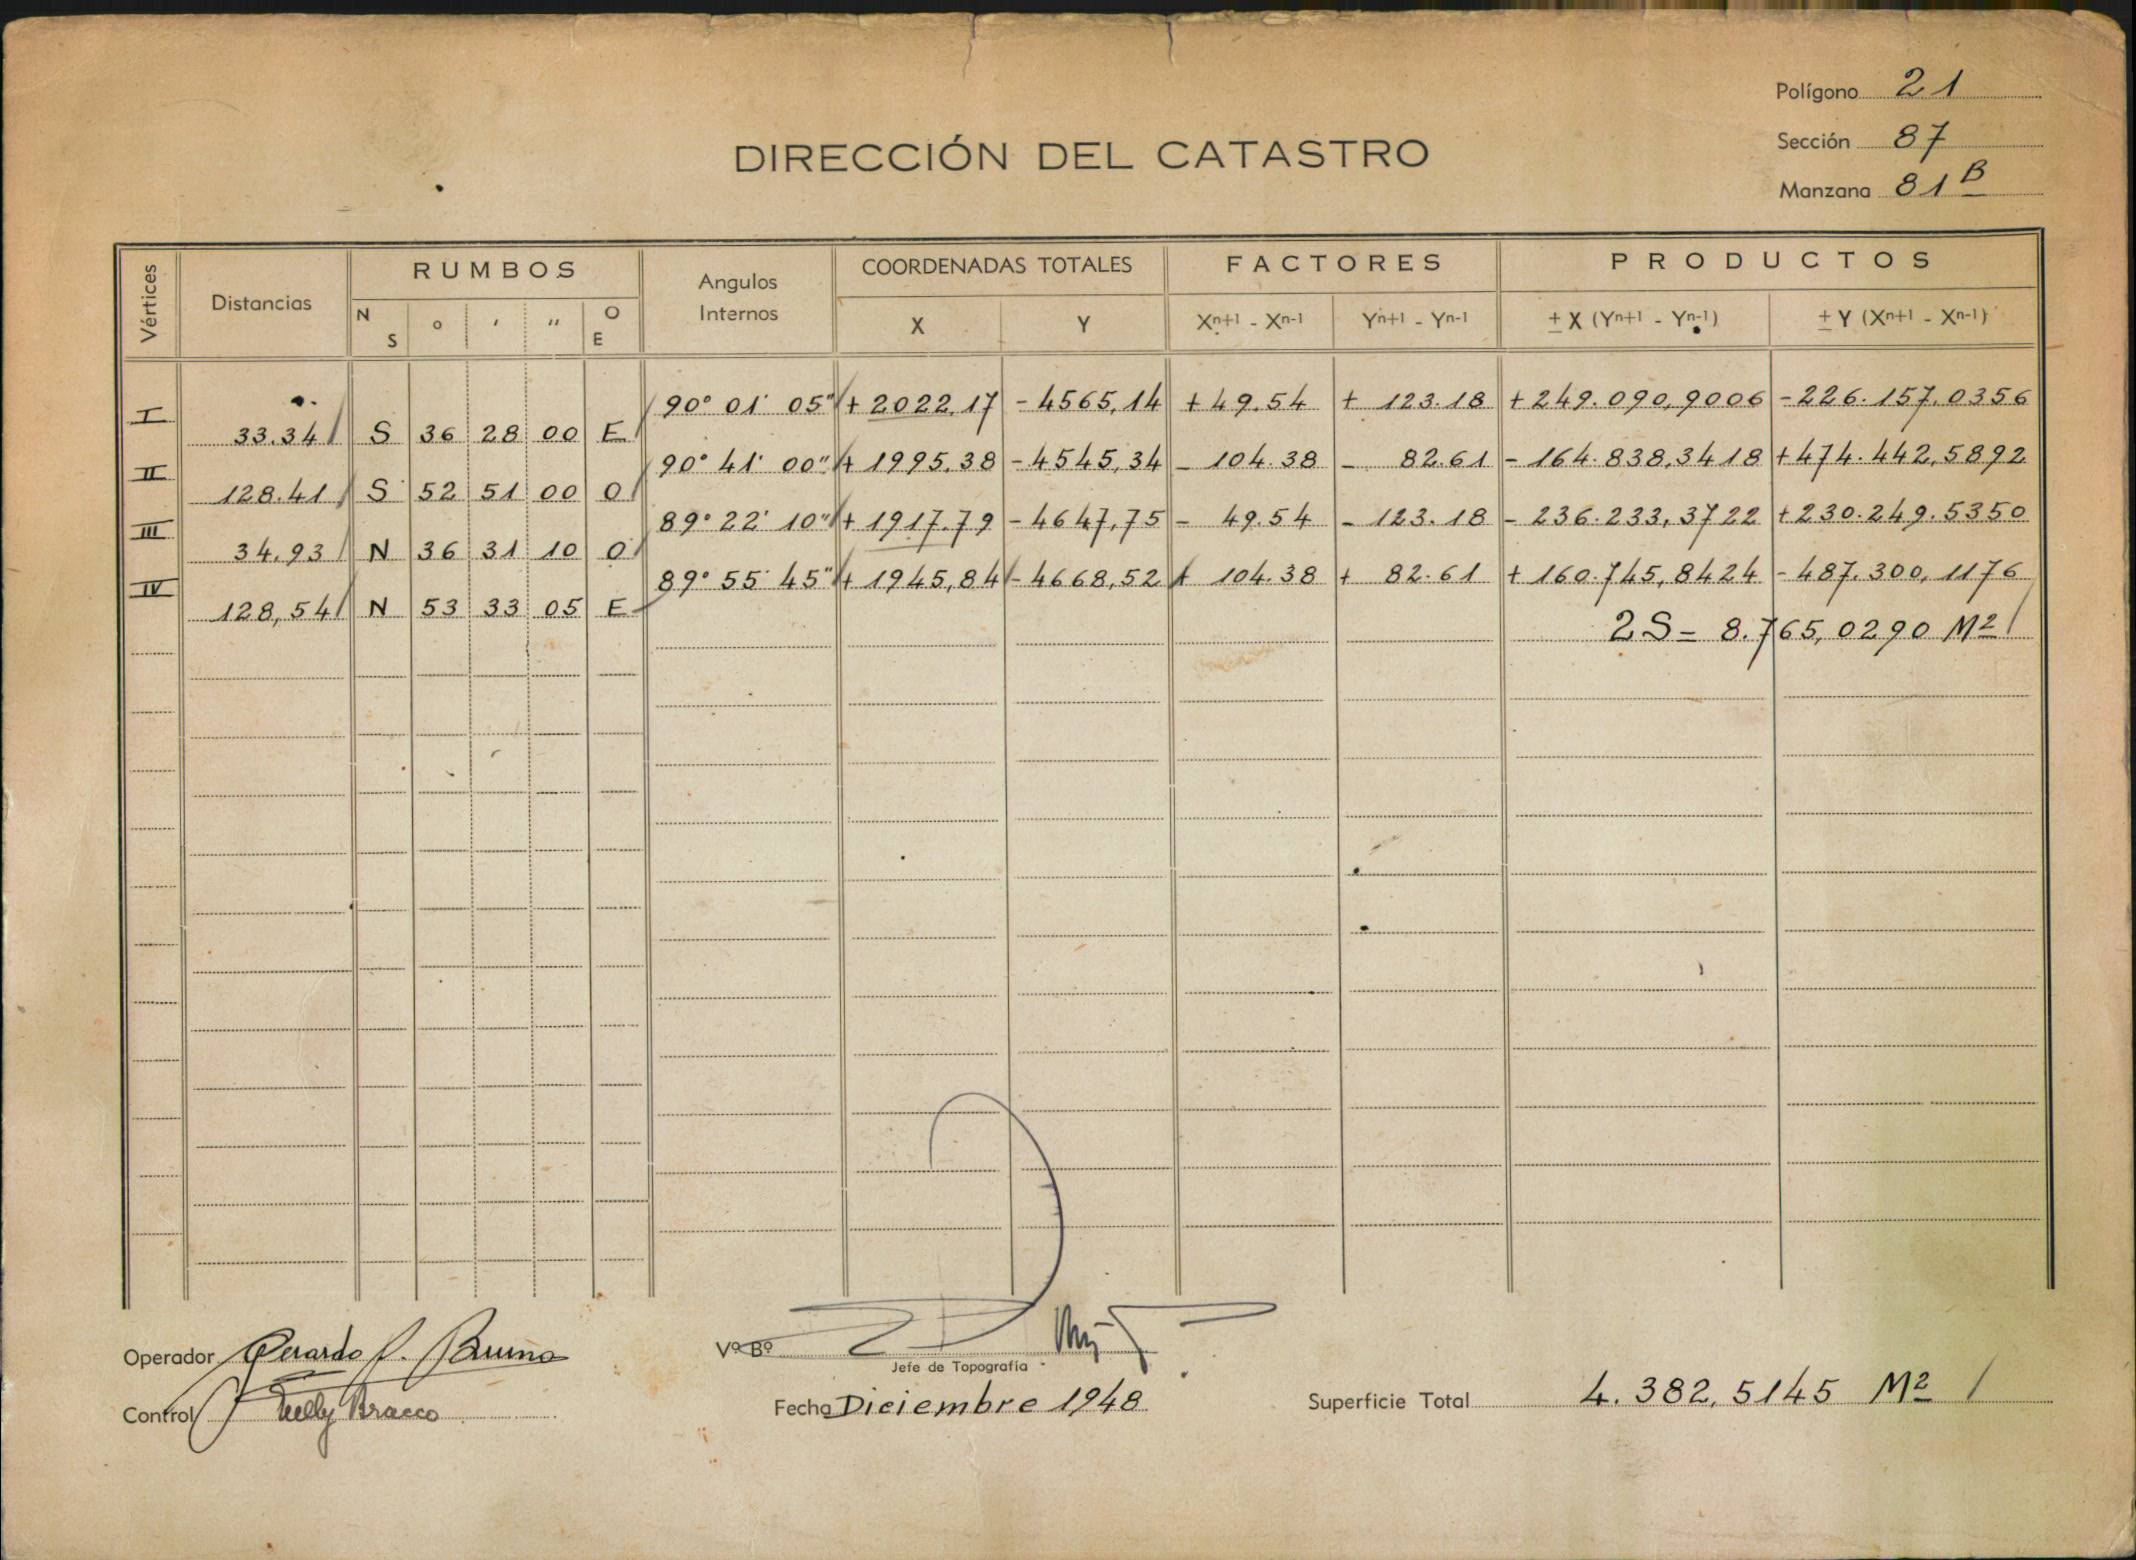 Polígono 21
Sección 87
Manzana 81 B
DIRECCIÓN DEL CATASTRO
Vértices Distancias RUMBOS Angulos Internos COORDENADAS TOTALES FACTORES PRODUCTOS
N S o ' " O E X Y Xn+1 - Xn-1 Yn+1 - Yn-1 ± X (Yn+1 - Yn-1) ± Y (Xn+1 - Xn-1)
I 90° 01' 05" + 2022,17 - 4565,14 + 49.54 + 123.18 + 249.090,9006 - 226.157,0356
33.34 S 36 28 00 E
II 90° 41' 00" + 1995.38 - 4545,34 - 104.38 - 82.61 - 164.838,3418 + 474.442,5892
128.41 S 52 51 00 O
III 89° 22' 10" + 1917.79 - 4647,75 - 49.54 - 123.18 - 236.233,3722 + 230.249.5350
34.93 N 36 31 10 O
IV 89° 55' 45" + 1945,84 - 4668,52 + 104.38 + 82.61 + 160.745,8424 - 487.300,1176
128,54 N 53 33 05 E
2S = 8.765,0290 M2
Operador Gerardo P. Bruno
Vº Bº
Jefe de Topografía
Control Nelly Bracco
Fecha Diciembre 1948
Superficie Total 4.382,5145 M2